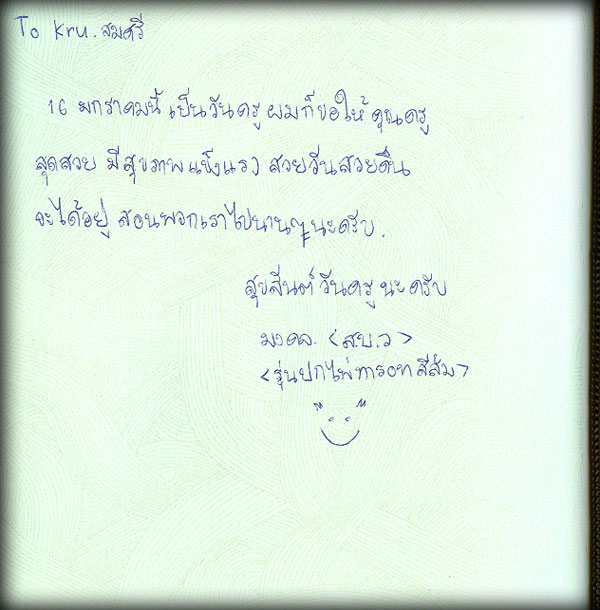 To Kru. สมศรี
16 มกราคมนี้ เป็นวันครู ผมก็ขอให้ คุณครู
สุดสวย มีสุขภาพแข็งแรง สวยวันสวยคืน
จะได้อยู่ สอนพวกเราไปนานๆนะครับ.
สุขสันต์ วันครู นะครับ
มงคล. <ส.บ.ว>
<รุ่นปกไพ่ทารอทสีส้ม>